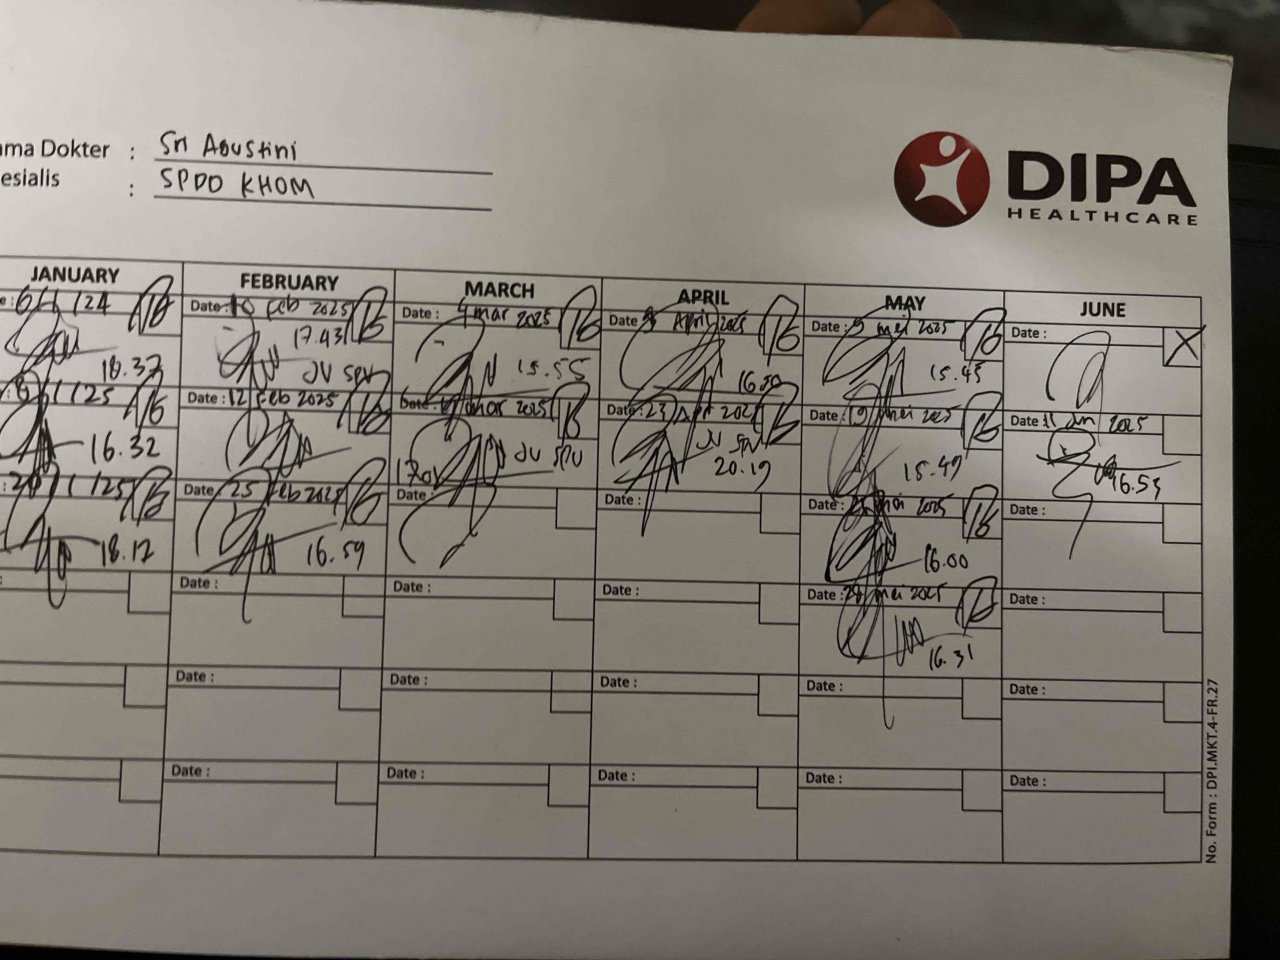 ama Dokter : Sri Agustini
esialis : SPDD KHOM
DIPA
HEALTHCARE
JANUARY
FEBRUARY
MARCH
APRIL
MAY
JUNE
e : 6/1/24
18.37
16.32
18.12
Date : 10 Feb 2025
17.43
JV SPV
Date : 12 Feb 2025
Date : 25 Feb 2025
16.59
Date :
Date :
Date :
Date : 4 mar 2025
15.55
2025
JV SPV
Date :
Date :
Date :
Date :
Date : April 2025
16.00
Date : 23
JV SPV
20.19
Date :
Date :
Date :
Date :
Date : 5 mei 2025
15.45
Date : 19 mei 2025
15.47
Date : mei 2025
16.00
Date : 28 mei 2025
16.31
Date :
Date :
Date :
Date : 11 Jun 2025
16.53
Date :
Date :
Date :
Date :
No. Form : DPI.MKT.4-FR.27